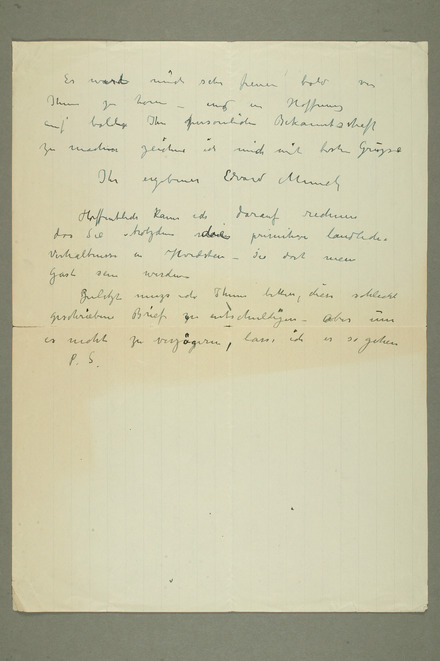 Es würde mich sehr freuen bald von
Ihnen zu hören – und in Hoffnung
auf baldige Ihre persönliche Bekanntschaft
zu machen zeichne ich mich mit besten Grüsse
Ihr ergebener Edvard Munch
Hoffentlich kann ich darauf rechnen
das Sie trotzdem die primitiven landliche
Verhältnisse in Hvidsten – Sie dort mein
Gast sein werden
Zuletzt muss ich Ihnen bitten, diesen schlecht
geschriebene Brief zu entschuldigen – Aber um
es nicht zu verzögern, lasse ich es so gehen
P. S.